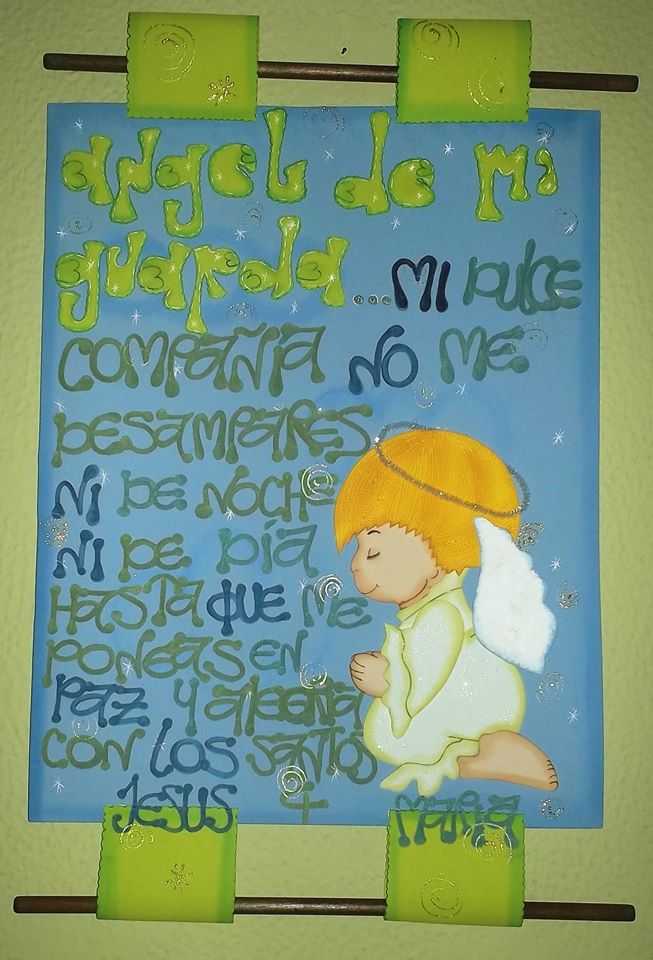 angel de mi
guarda...MI DULCE
COMPAÑIA NO ME
DESAMPARES
NI DE NOCHE
NI DE DÍA
HASTA QUE ME
PONGAS EN
PAZ Y ALEGRIA
CON LOS SANTOS
JESUS Y MARIA